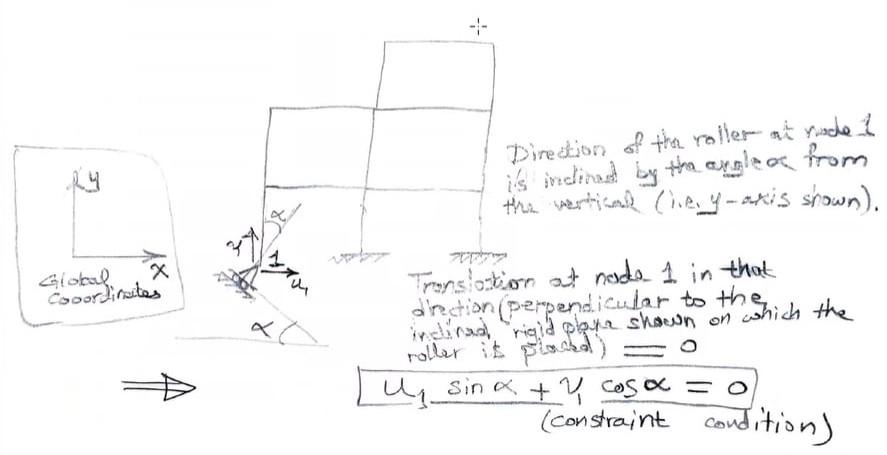 y
x
Global
Cooordinates
α
v
1
u₁
α
Direction of the roller at node 1
is inclined by the angle α from
the vertical (i.e. y-axis shown).
Translation at node 1 in that
direction (perpendicular to the
inclined, rigid plane shown on which the
roller is placed) = 0
⇒ u₁ sin α + v₁ cos α = 0
(constraint condition)